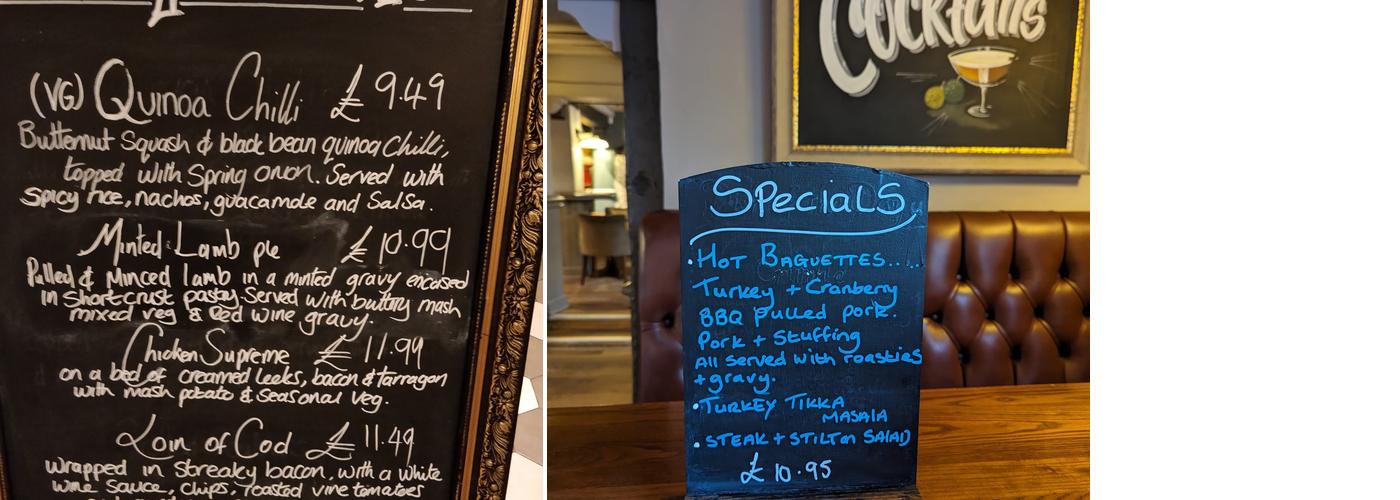 (VG) Quinoa Chilli £9.49
Butternut Squash & black bean quinoa Chilli,
topped with Spring onion. Served with
Spicy rice, nachos, guacamole and Salsa.
Minted Lamb pie £10.99
Pulled & Minced lamb in a minted gravy encased
in shortcrust pastry. Served with buttery mash
mixed veg & Red wine gravy.
Chicken Supreme £11.99
on a bed of creamed leeks, bacon & tarragon
with mash potato & Seasonal veg.
Loin of Cod £11.49
wrapped in Streaky bacon, with a white
wine Sauce, chips, roasted vine tomatoes
Cocktails
SPeciaLS
•HOT BAGUETTES.....
Turkey + Cranberry
BBQ pulled pork.
Pork + Stuffing
All served with roasties
+ gravy.
•TURKEY TIKKA
MASALA
•STEAK + STILTON SALAD
£10.95